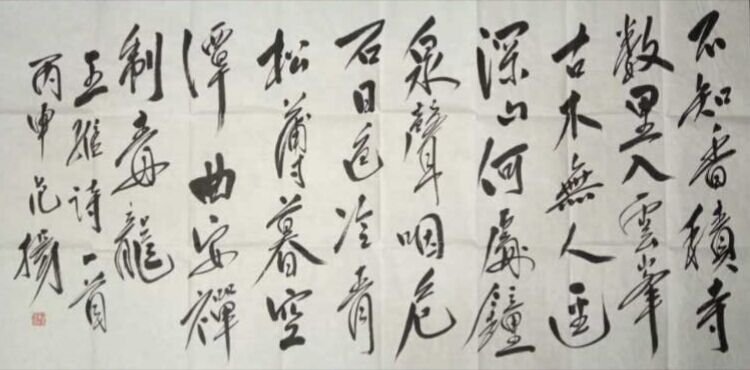 不知香積寺
数里入雲峯
古木無人逕
深山何處鐘
泉聲咽危
石日色冷青
松薄暮空
潭曲安禪
制毒龍
王維詩一首
丙申范揚